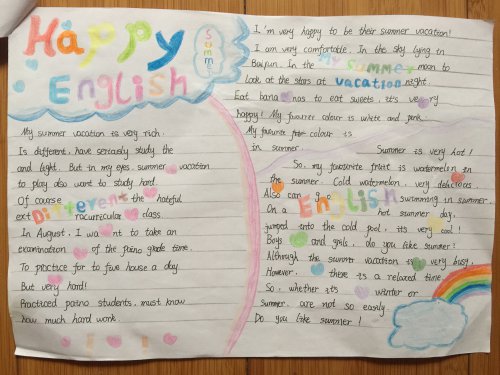 Happy
Summer
English
My summer vacation is very rich.
Is different. have seriously study the
and light. But in my eyes. summer vacation
to play also want to study hard.
Of course the hateful
Different
extracurricular class.
In August. I want to take an
examination of the paino grade time.
To practice for to five house a day
But very hard!
Practiced paino students. must know
how much hard work.
I, m very happy to be their summer vacation!
I am very comfortable. In the sky lying in
In the moon to
My summer
vacation
Look at the stars at night
Eat bananas to eat sweets. it's very
happy! My favourer colour is white and pink.
My favourite colour is
in summer. Summer is very hot!
So. my favourite fruit is watermelon in
the summer. Cold watermelon. very delicious.
Also can go swimming in summer.
English
On a hot summer day,
jumped into the cold pool, its very cool!
Boys and girls. do you like summer?
Althrough the summer vacation is very busy,
However. there is a relaxed time.
So. whether its winter or
summer. are not so easily.
Do you like summer!